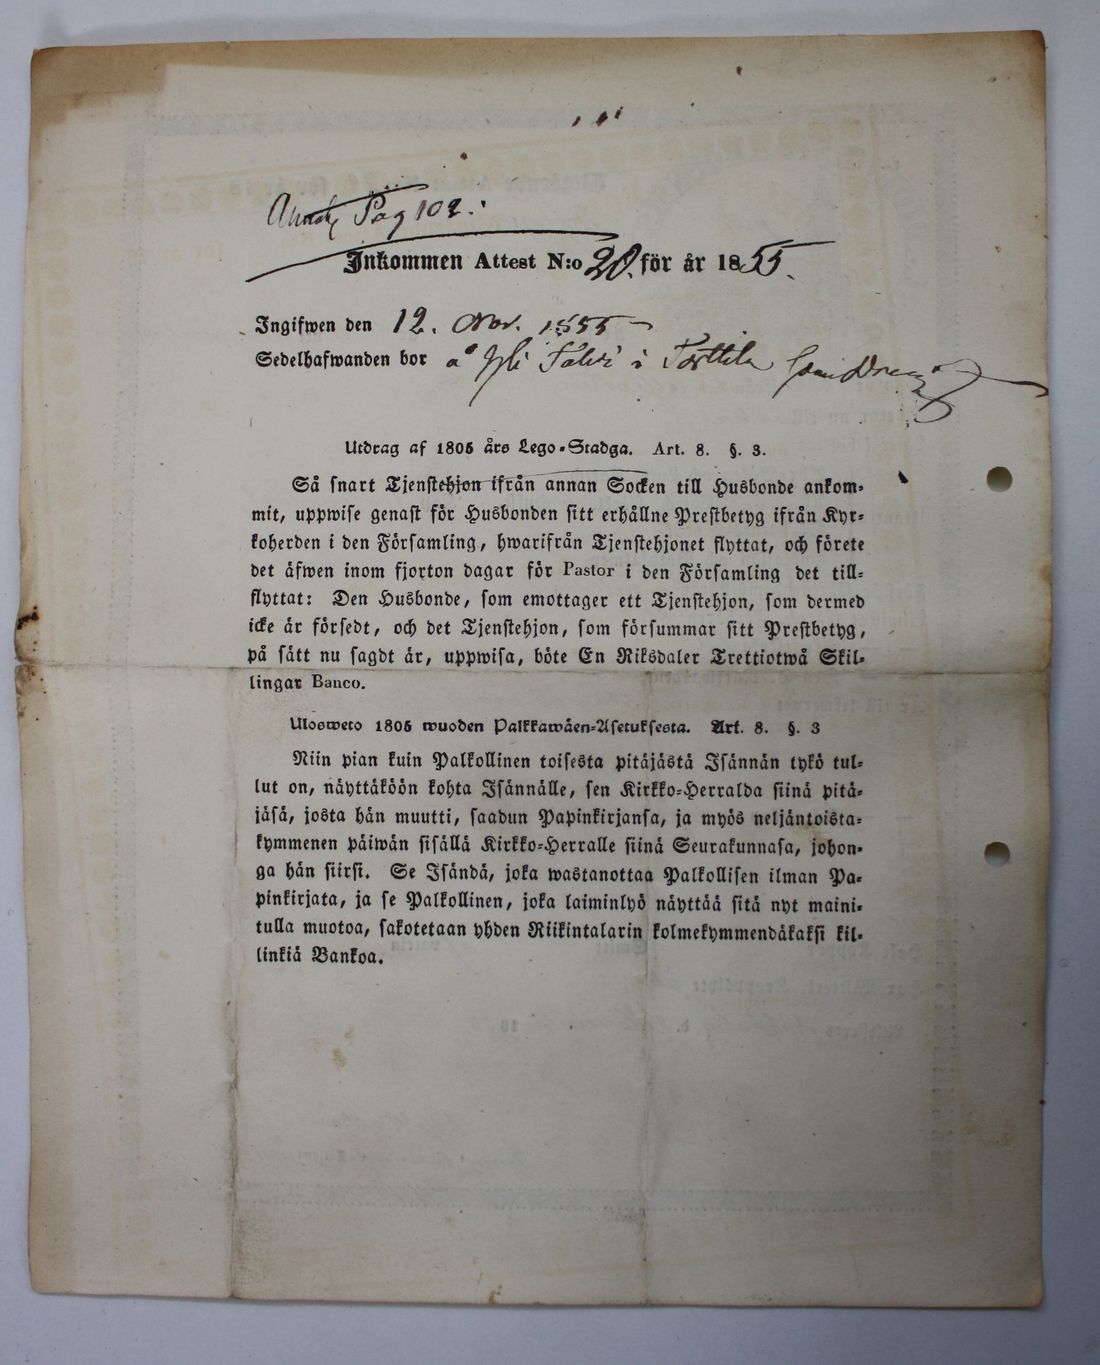 Pag 102.
Inkommen Attest N:o 20. för år 1855.
Ingifwen den 12. Nov. 1855
Sedelhafwanden bor å Yli i Torttila
Utdrag af 1805 års Lego-Stadga. Art. 8. §. 3.
Så snart Tjenstehjon ifrån annan Socken till Husbonde ankom-
mit, uppwise genast för Husbonden sitt erhållne Prestbetyg ifrån Kyr-
koherden i den Församling, hwarifrån Tjenstehjonet flyttat, och förete
det äfwen inom fjorton dagar för Pastor i den Församling det till-
flyttat: Den Husbonde, som emottager ett Tjenstehjon, som dermed
icke är försedt, och det Tjenstehjon, som försummar sitt Prestbetyg,
på sätt nu sagdt är, uppwisa, böte En Riksdaler Trettiotwå Skil-
lingar Banco.
Ulosweto 1805 wuoden Palkkawäen-Asetuksesta. Art. 8. §. 3
Niin pian kuin Palkollinen toisesta pitäjästä Isännän tykö tul-
lut on, näyttäköön kohta Isännälle, sen Kirkko-Herralda siinä pitä-
jäsä, josta hän muutti, saadun Papinkirjansa, ja myös neljäntoista-
kymmenen päiwän sisällä Kirkko-Herralle siinä Seurakunnasa, johon-
ga hän siirsi. Se Isändä, joka wastanottaa Palkollisen ilman Pa-
pinkirjata, ja se Palkollinen, joka laiminlyö näyttää sitä nyt maini-
tulla muotoa, sakotetaan yhden Riikintalarin kolmekymmendäkaksi kil-
linkiä Bankoa.